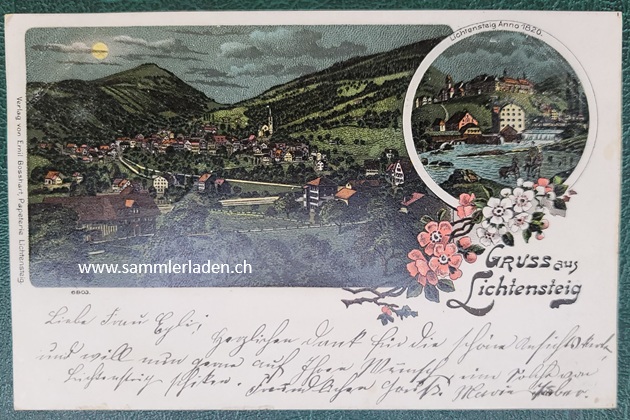 Lichtensteig Anno 1820.
Verlag von Emil Bosshart, Papeterie Lichtensteig
www.sammlerladen.ch
Gruss aus
Lichtensteig
6803.
Liebe Frau Egli!
Herzlichen Dank für die schöne Ansichtskarte
und will nun gerne auf Ihren Wunsch eine solche von
Lichtensteig schiken. Freundlichen Gruss. Marie